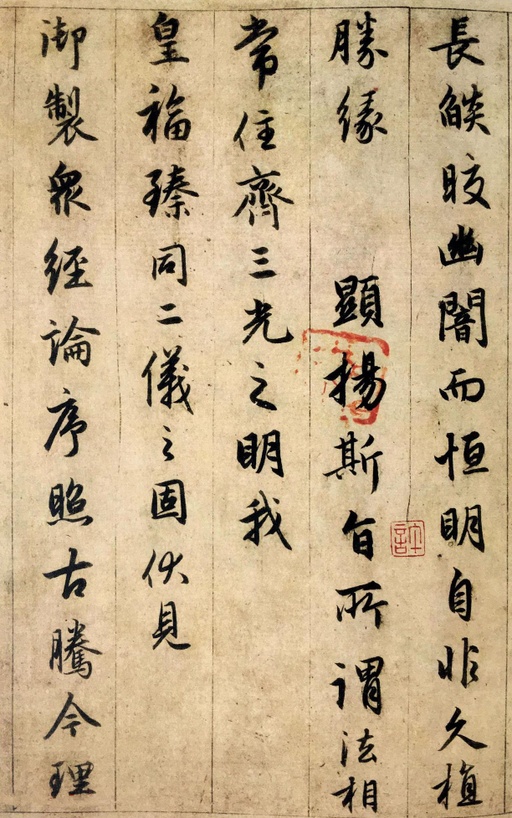 長燄皎幽闇而恒明自非久植
勝緣 顯揚斯旨所謂法相
常住齊三光之明我
皇福臻同二儀之固伏見
御製衆經論序照古騰今理